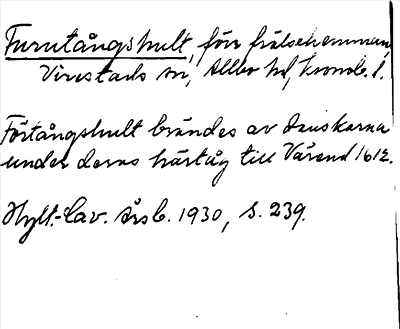 Furutångshult, förr frälsehemman
Virestads sn, Allbo hd, Kronob. l.
Förtångshult brändes av danskarna
under deras härtåg till Värend 1612.
Hylt.-Cav. Årsb. 1930, s. 239.